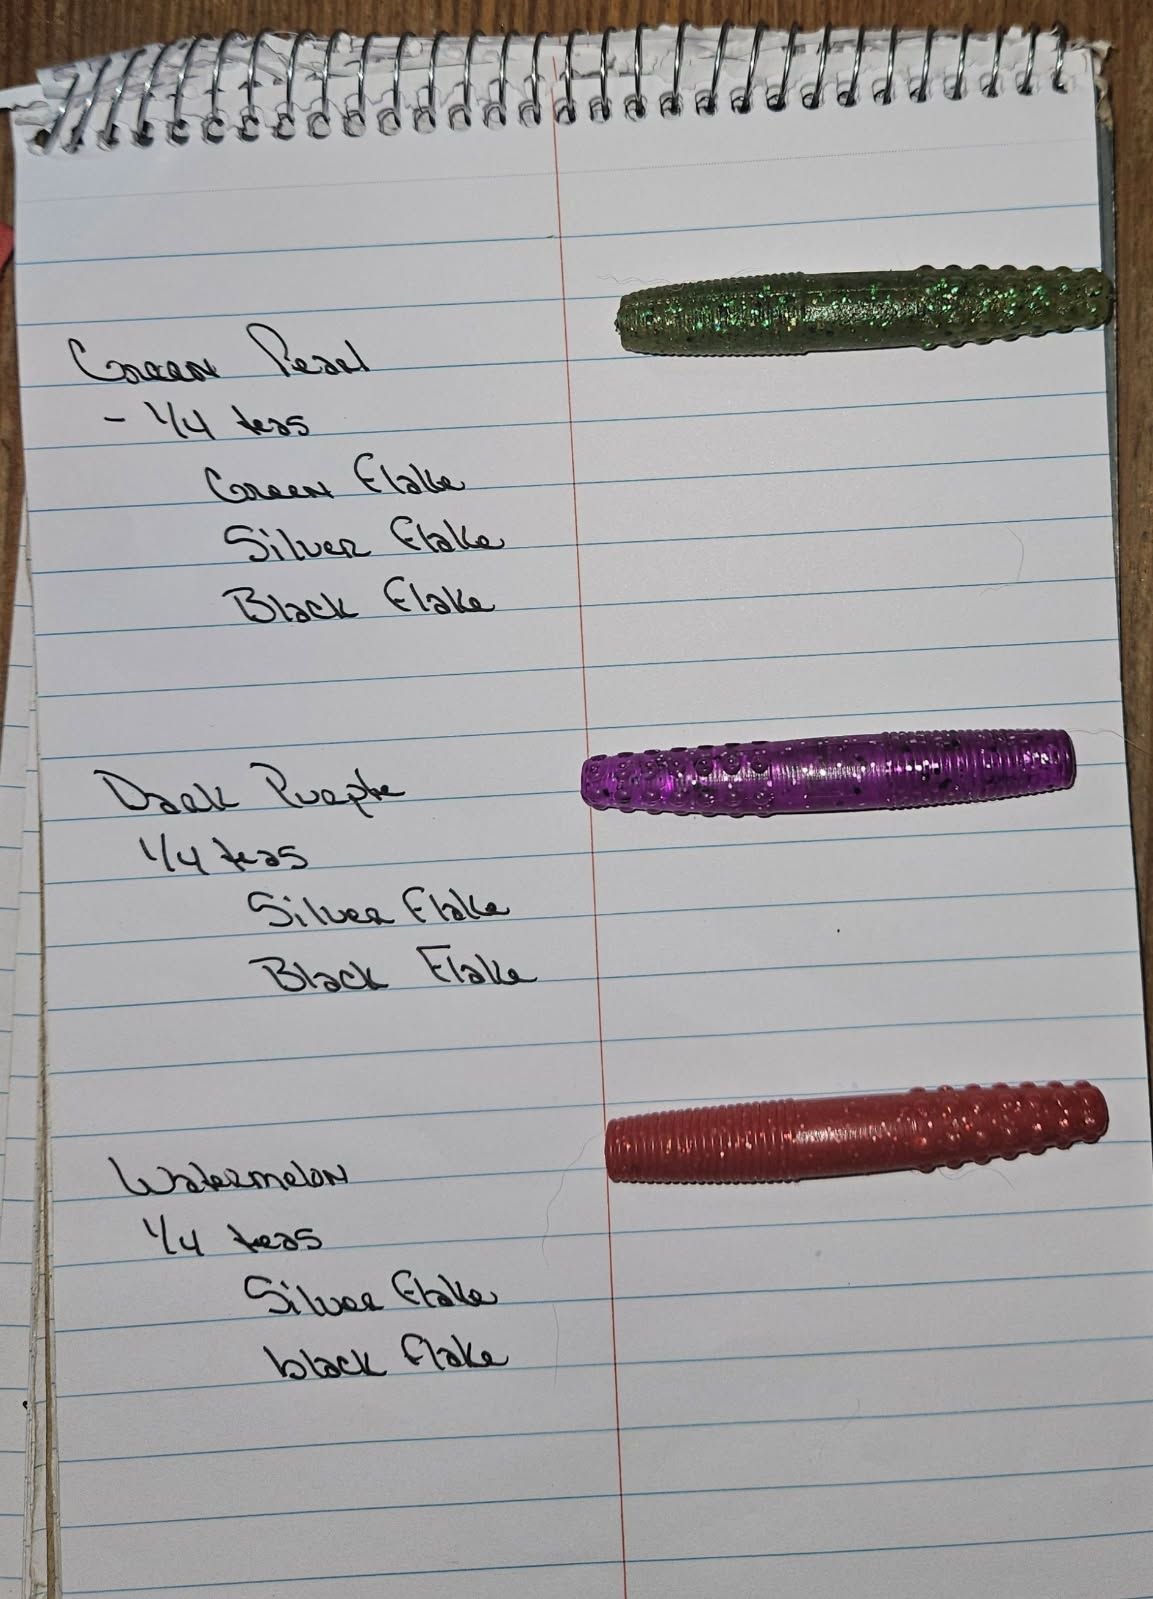 Green Pearl
- 1/4 teas
Green Flake
Silver Flake
Black Flake
Dark Purple
1/4 teas
Silver Flake
Black Flake
Watermelon
1/4 teas
Silver Flake
black flake